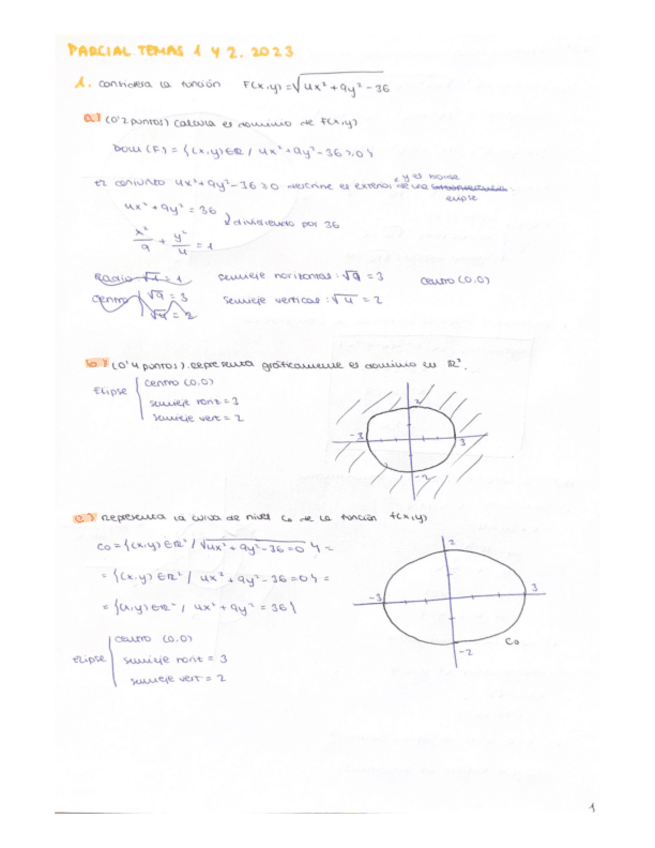 PARCIAL TEMAS 1 Y 2. 2023
1. considera la función F(x,y)=√4x²+9y²-36
a.) (0'2 puntos) calcula el dominio de F(x,y)
Dom (F) = {(x,y)∈ℝ / 4x²+9y²-36≥0}
y el borde
El conjunto 4x²+9y²-36≥0 describe el exterior de una
elipse
4x²+9y²=36
dividiendo por 36
x²/9 + y²/4 = 1
Radio √1=1 semieje horizontal: √9 = 3 centro (0,0)
centro √9 = 3 semieje vertical: √4 = 2
√4 = 2
b.) (0'4 puntos). Representa gráficamente el dominio en ℝ².
Elipse centro (0,0)
semieje horit = 3
semieje vert = 2
2
-3 3
-2
c.) Representa la curva de nivel C₀ de la función f(x,y)
C₀ = {(x,y)∈ℝ² / √4x²+9y²-36=0} =
= {(x,y)∈ℝ² / 4x²+9y²-36=0} =
= {(x,y)∈ℝ² / 4x²+9y²=36}
Elipse centro (0,0)
semieje horit = 3
semieje vert = 2
2
-3 3
-2
C₀
1